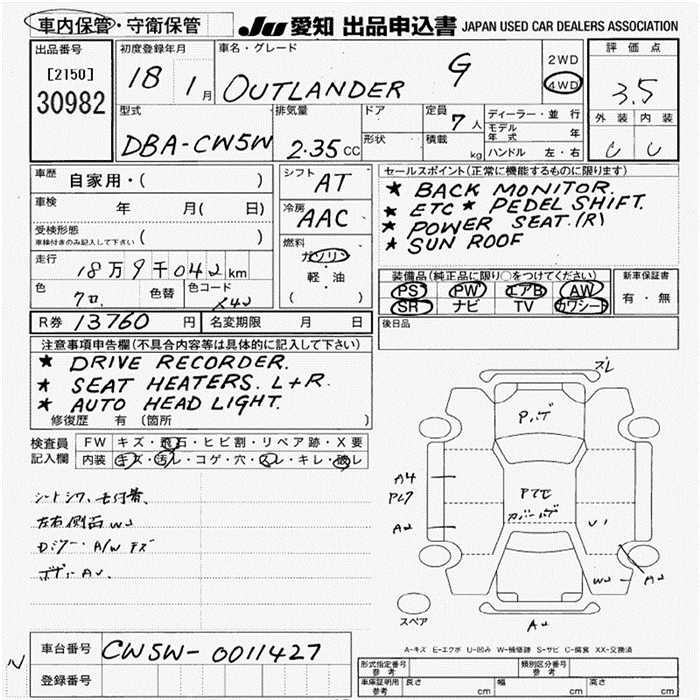 車内保管・守衛保管
JU 愛知 出品申込書 JAPAN USED CAR DEALERS ASSOCIATION
出品番号
[2150]
30982
初度登録年月
18 1月
車名・グレード
OUTLANDER G
2WD
4WD
評価点
3.5
外装 内装
C C
型式
DBA-CW5W
排気量
2.35CC
ドア
形状
定員
7人
積載
kg
ディーラー・並行
モデル年式 年
ハンドル 左・右
車歴
自家用・( )
車検
年 月( 日)
受検形態
車検付きのみ記入して下さい ( )
走行
18万9千042km
色
色替
色コード
X42
シフト
AT
冷房
AAC
燃料
ガソリン
軽・油
( )
セールスポイント(正常に機能するものに限ります)
★ BACK MONITOR.
★ ETC ★ PEDEL SHIFT.
★ POWER SEAT.(R)
★ SUN ROOF
装備品(純正品に限り○をつけてください)
PS PW エアB AW
SR ナビ TV カワシート
新車保証書
有・無
後日品
R券 13760 円
名変期限 月 日
注意事項申告欄(不具合内容等は具体的に記入して下さい)
★ DRIVE RECORDER.
★ SEAT HEATERS. L+R.
★ AUTO HEAD LIGHT.
修復歴 有 (箇所 )
検査員記入欄
FW キズ・飛石・ヒビ割・リペア跡・X要
内装 キズ・汚レ・コゲ・穴・スレ・キレ・破レ
ズレ
A4
スペア
A-キズ E-エクボ U-凹み W-補修跡 S-サビ C-腐食 XX-交換済
車台番号
CW5W-0011427
登録番号
形式指定番号
参考
類別区分番号
車庫証明用
参考
長さ cm
幅 cm
高さ cm